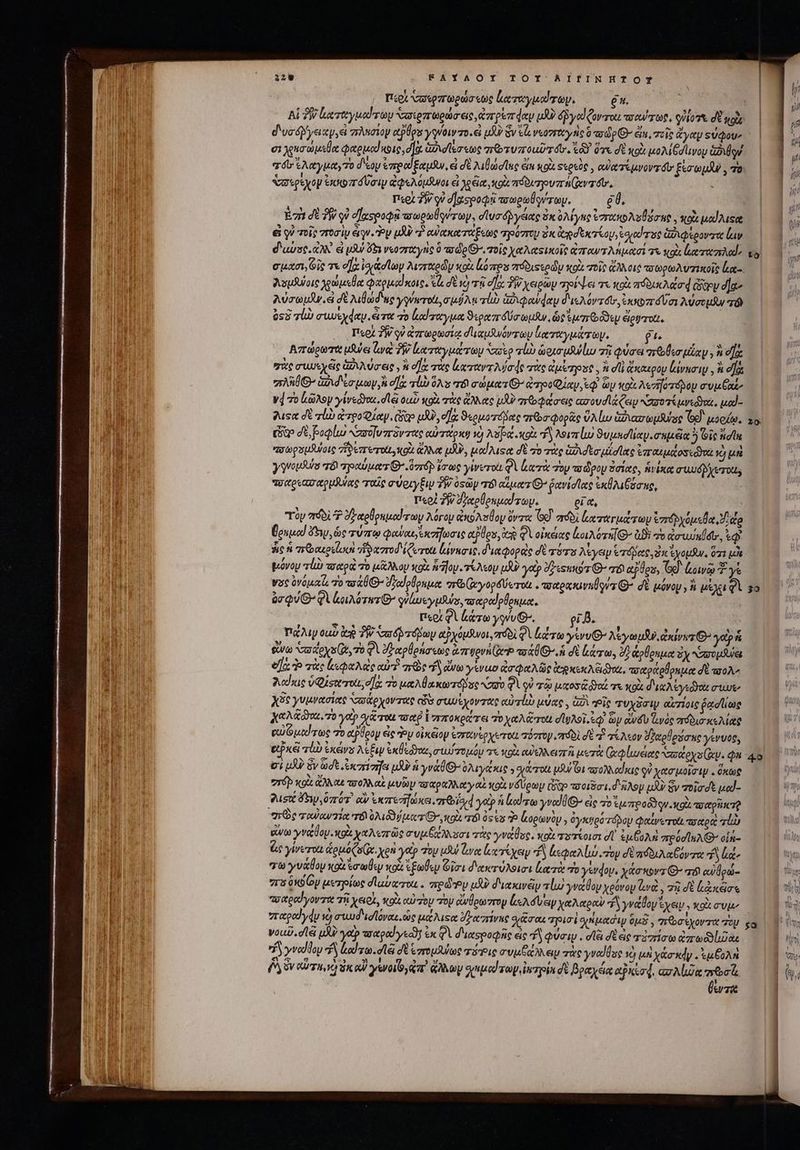 228 ΠΑΥΛΟΥ ΤΟΥ ΑΙΓΙΝΗΤΟΥ
Περὶ ὑπερπωρώσεως καταγμάτων. ρη.
Αἱ τῶν καταγμάτων ὑπερπωρώσεις, ἀπρέπειαν μὲν ἐργάζονται παντως, ἐνίοτε δὲ καὶ
δυσέργειαν, εἰ πλησίον ἄρθρου γένοιντο. εἰ μὲν οὖν ἔτι νεοπαγὴς ὁ πῶρος εἴη, τοῖς ἄγαν στύφου-
σι χρησώμεθα φαρμάκοις, διὰ ἐπιδέσεως προτυποῦντες. ἔσθ' ὅτε δὲ καὶ μολίβδινον ἐπιθεῖναι
ἔλασμα, τὸ δέον ἐπράξαμεν. εἰ δὲ λιθώδης εἴη καὶ στερεὸς, ἀνατέμνοντες ξέσωμεν, τὸ
ὑπερέχον ἐκκοπεῦσιν ἀφελόμενοι εἰ χρεία, καὶ περιτρυπήσαντες.
Περὶ τῶν ἐν διαστροφῇ πωρωθέντων. ρθ.
Ἐπὶ δὲ τῶν ἐν διαστροφῇ πωρωθέντων, δυσέργειας οὐκ ὀλίγης ἐπακολουθούσης, καὶ μάλιστα
εἰ ἐν τοῖς ποσὶν εἴη. τὸν μὲν τῆς ἀνακατάξεως τρόπον οὐκ ἀποδεκτέον, ἐσχάτους ἐπιφέροντα κιν-
δύνους. ἀλλ' εἰ μὲν ἔτι νεοπαγὴς ὁ πῶρος, τοῖς χαλαστικοῖς ἀπαντλήμασί τε καὶ καταπλά-
σμασι, τοῖς τε διὰ ἰσχάδων λιπαρῶν καὶ κόπρου περιστερῶν καὶ τοῖς ἄλλοις πωρολυτικοῖς κα-
λουμένοις χρώμεθα φαρμάκοις. ἔτι δὲ καὶ τῇ διὰ τῶν χειρῶν τρίψει τε καὶ περικλάσει ὥσπερ δια-
λύσωμεν. εἰ δὲ λιθώδης γένηται, σμίλῃ τὴν ἐπιφάνειαν διελόντες, ἐκκοπεῦσι λύσομεν τοῦ
ὀστοῦ τὴν συνέχειαν, εἶτα τὸ κάταγμα θεραπεύσωμεν, ὡς ἔμπροσθεν εἴρηται.
Περὶ τῶν ἐν ἀπωρωσίᾳ διαμενόντων καταγμάτων. ρι.
Ἀπώρωτα μένει τινὰ τῶν καταγμάτων ὑπὲρ τὴν ὡρισμένην τῇ φύσει προθεσμίαν, ἢ διὰ
τὰς συνεχεῖς ἐπιλύσεις, ἢ διὰ τὰς καταντλήσεις τὰς ἀμέτρους, ἢ διὰ ἄκαιρον κίνησιν, ἢ διὰ
πλῆθος ἐπιδέσμων, ἢ διὰ τὴν ὅλου τοῦ σώματος ἀτροφίαν, ἐφ' ὧν καὶ λεπτότερον συμβαί-
νει τὸ κῶλον γίνεσθαι. διὸ οὖν καὶ τὰς ἄλλας μὲν προφάσεις σπουδάζειν ὑποτέμνεσθαι. μά-
λιστα δὲ τὴν ἀτροφίαν. ὥσπερ μὲν, διὰ θερμοτέρας προσφορᾶς ὕλην ἐπισπωμένους τοῦ μορίου.
ὥσπερ δὲ, τροφὴν ὑποτρέποντας αὐτάρκη καὶ λουτρά. καὶ τὴν λοιπὴν θυμηδίαν. σημεῖα δὲ τοῖς ἤδη
πωρουμένοις προέπεται, καὶ ἄλλα μὲν, μάλιστα δὲ τὸ τὰς ἐπιδεσμίδας ἐπαιμάσσεσθαι καὶ μὴ
γενομένου τοῦ τραύματος. ὅπερ ἴσως γίνεται ἐκ τῆς κατὰ τὸν πῶρον οὐσίας, ἡνίκα συνέρχεται,
παρεσπαρμένας ταῖς σύριγξιν τῶν ὀστῶν τοῦ αἵματος ῥανίδας ἐκθλιβούσης.
Περὶ τῶν ἐξαρθρημάτων. ρια.
Τὸν περὶ τῶν ἐξαρθρημάτων λόγον ἀκόλουθον ὄντα τοῦ περὶ καταγμάτων ἐπερχόμεθα, ἐξάρ-
θρημα δέ ἐστιν, ὡς τύπῳ φάναι, ἔκπτωσις ἄρθρου, ἀπὸ τῆς οἰκείας κοιλότητος ἐπὶ τὸ ἀσυνήθες, ἐφ'
ἧς ἡ προαιρετικὴ παραποδίζεται κίνησις. διαφορὰς δὲ τούτου λέγειν ἑτέρας, οὐκ ἔχομεν. ὅτι μὴ
μόνον τὴν παρὰ τὸ μᾶλλον καὶ ἧττον. τέλεον μὲν γὰρ ἐξεστηκότος τοῦ ἄρθρου, τοῦ κοινῷ τοῦ γέ-
νους ὀνόματι τὸ πάθος ἐξάρθρημα προσαγορεύεται. παρακινηθέντος δὲ μόνον, ἢ μέχρι τῆς
ὀσφύος τῆς κοιλότητος ἐνηνεγμένου, παράρθρημα.
Περὶ τῆς κάτω γένυος. ριβ.
Πάλιν οὖν ἀπὸ τῶν ὑπερτέρων ἀρχόμενοι, περὶ τῆς κάτω γένυος λέγωμεν. ἀκίνητος γὰρ ἡ
ἄνω ὑπάρχουσα, τὸ τῆς ἐξαρθρήσεως ἀπηρνήσατο πάθος. ἡ δὲ κάτω, ἐξάρθρημα οὐχ ὑπομένει
διὰ τὸ τὰς κεφαλὰς αὐτῆς πρὸς τὴν ἄνω γένυν ἀσφαλῶς ἀποκεκλεῖσθαι. παράρθρημα δὲ πολ-
λάκις ὑφίσταται, διὰ τὸ μαλθακωτέρους ὑπὸ τῆς ἐν τῷ μασᾶσθαί τε καὶ διαλέγεσθαι συνε-
χοῦς γυμνασίας ὑπάρχοντας τοὺς συνέχοντας αὐτὴν μύας, ἐπὶ τοῖς τυχοῦσιν αἰτίοις ῥᾳδίως
χαλᾶσθαι. τὸ γὰρ σχᾶται παρ' Ἱπποκράτει τὸ χαλᾶται δηλοῖ. ἐφ' ὧν ἄνευ τινὸς περισκελίας
αὐθωμάτως τὸ ἄρθρον εἰς τὸν οἰκεῖον ἐπανέρχεται τόπον. περὶ δὲ τῆς τέλεον ἐξαρθρούσης γένυος,
ἀρκεῖ τὴν ἐκείνου λέξιν ἐκθέσθαι, σύντομόν τε καὶ ἀνελλιπῆ μετὰ σαφηνείας ὑπάρχουσαν. φη-
σὶ μὲν οὖν ὧδε. ἐκπίπτει μὲν ἡ γνάθος ὀλιγάκις, σχᾶται μέντοι πολλάκις ἐν χασμοῖσιν. ὅκως
περ καὶ ἄλλαι πολλαὶ μυῶν παραλλαγαὶ καὶ νεύρων ὥσπερ ποιοῦσι. δῆλον μὲν οὖν τοῖσδε μά-
λιστά ἐστιν, ὁπότ' ἂν ἐκπεπτώκει. προίσχει γὰρ ἡ κάτω γνάθος εἰς τὸ ἔμπροσθεν. καὶ παρῆκται
πρὸς ταὐναντία τοῦ ὀλισθήματος, καὶ τοῦ ὀστέου τὸ κορωνὸν, ὀγκηρότερον φαίνεται παρὰ τὴν
ἄνω γνάθον. καὶ χαλεπῶς συμβάλλουσι τὰς γνάθους. καὶ τουτέοισι δὲ ἐμβολὴ πρόδηλος οἵη-
τις γίνεται ἁρμόζουσα. χρὴ γὰρ τὸν μέν τινα κατέχειν τὴν κεφαλὴν. τὸν δὲ περιλαβόντα τὴν κά-
τω γνάθον καὶ ἔσωθεν καὶ ἔξωθεν τοῖσι δακτύλοισι κατὰ τὸ γένειον. χάσκοντος τοῦ ἀνθρώ-
που ὁκόσον μετρίως δύναται. πρῶτον μὲν διακινεῖν τὴν γνάθον χρόνον τινὰ, τῇ δὲ κἀκεῖσε
παράγοντα τῇ χειρὶ, καὶ αὐτὸν τὸν ἄνθρωπον κελεύειν χαλαρὰν τὴν γνάθον ἔχειν, καὶ συμ-
παράγειν καὶ συνδιδόναι. ὡς μάλιστα ἐξαπίνης σχᾶσαι τρισὶ σχήμασιν ὁμοῦ, προσέχοντα τὸν
νοῦν. δεῖ μὲν γὰρ παράγεσθαι ἐκ τῆς διαστροφῆς εἰς τὴν φύσιν. δεῖ δὲ εἰς τοὐπίσω ἀπωσθῆναι
τὴν γνάθον τὴν κάτω. δεῖ δὲ ἑπομένως τούτοις συμβάλλειν τὰς γνάθους καὶ μὴ χάσκειν. ἐμβολὴ
μὲν οὖν αὕτη, καὶ οὐκ ἂν γένοιτο, ἀπ' ἄλλων σχημάτων, ἰητρείη δὲ βραχεῖα ἀρκέσει. σπλῆνα προστι-
θέντα